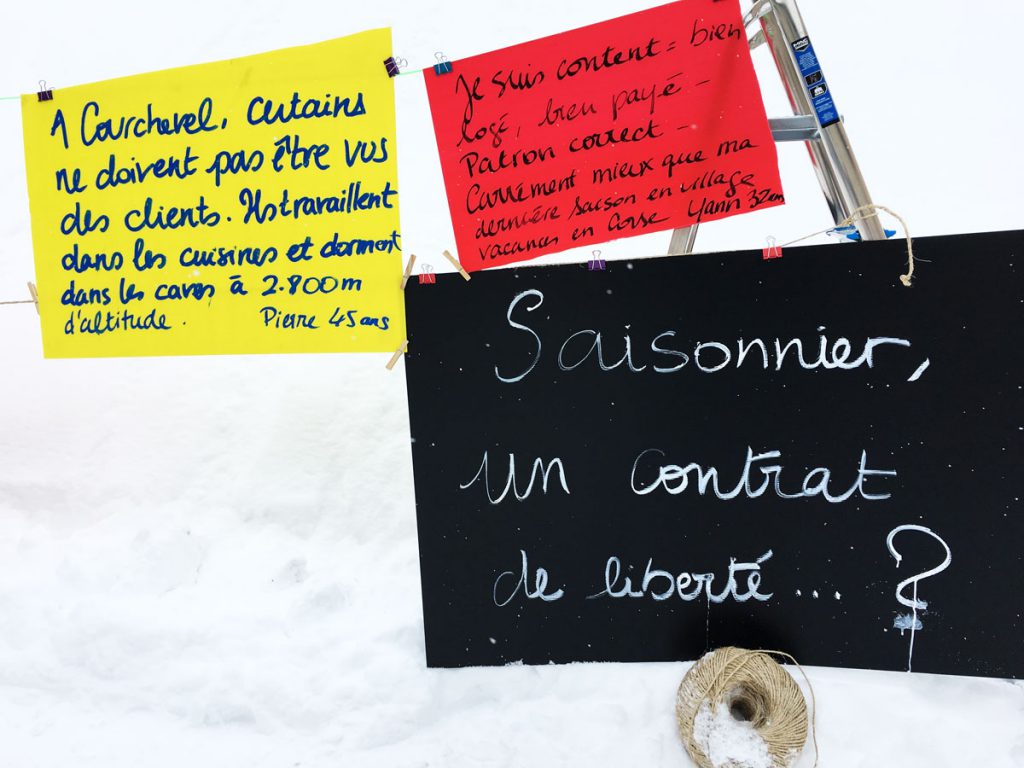 A Courchevel, certains
ne doivent pas être vus
des clients. Ils travaillent
dans les cuisines et dorment
dans les caves à 2.800m
d'altitude. Pierre 45 ans
Je suis content = bien
logé, bien payé -
Patron correct -
Carrément mieux que ma
dernière saison en village
vacances en Corse Yann 32ans
Saisonnier,
un contrat
de liberté... ?